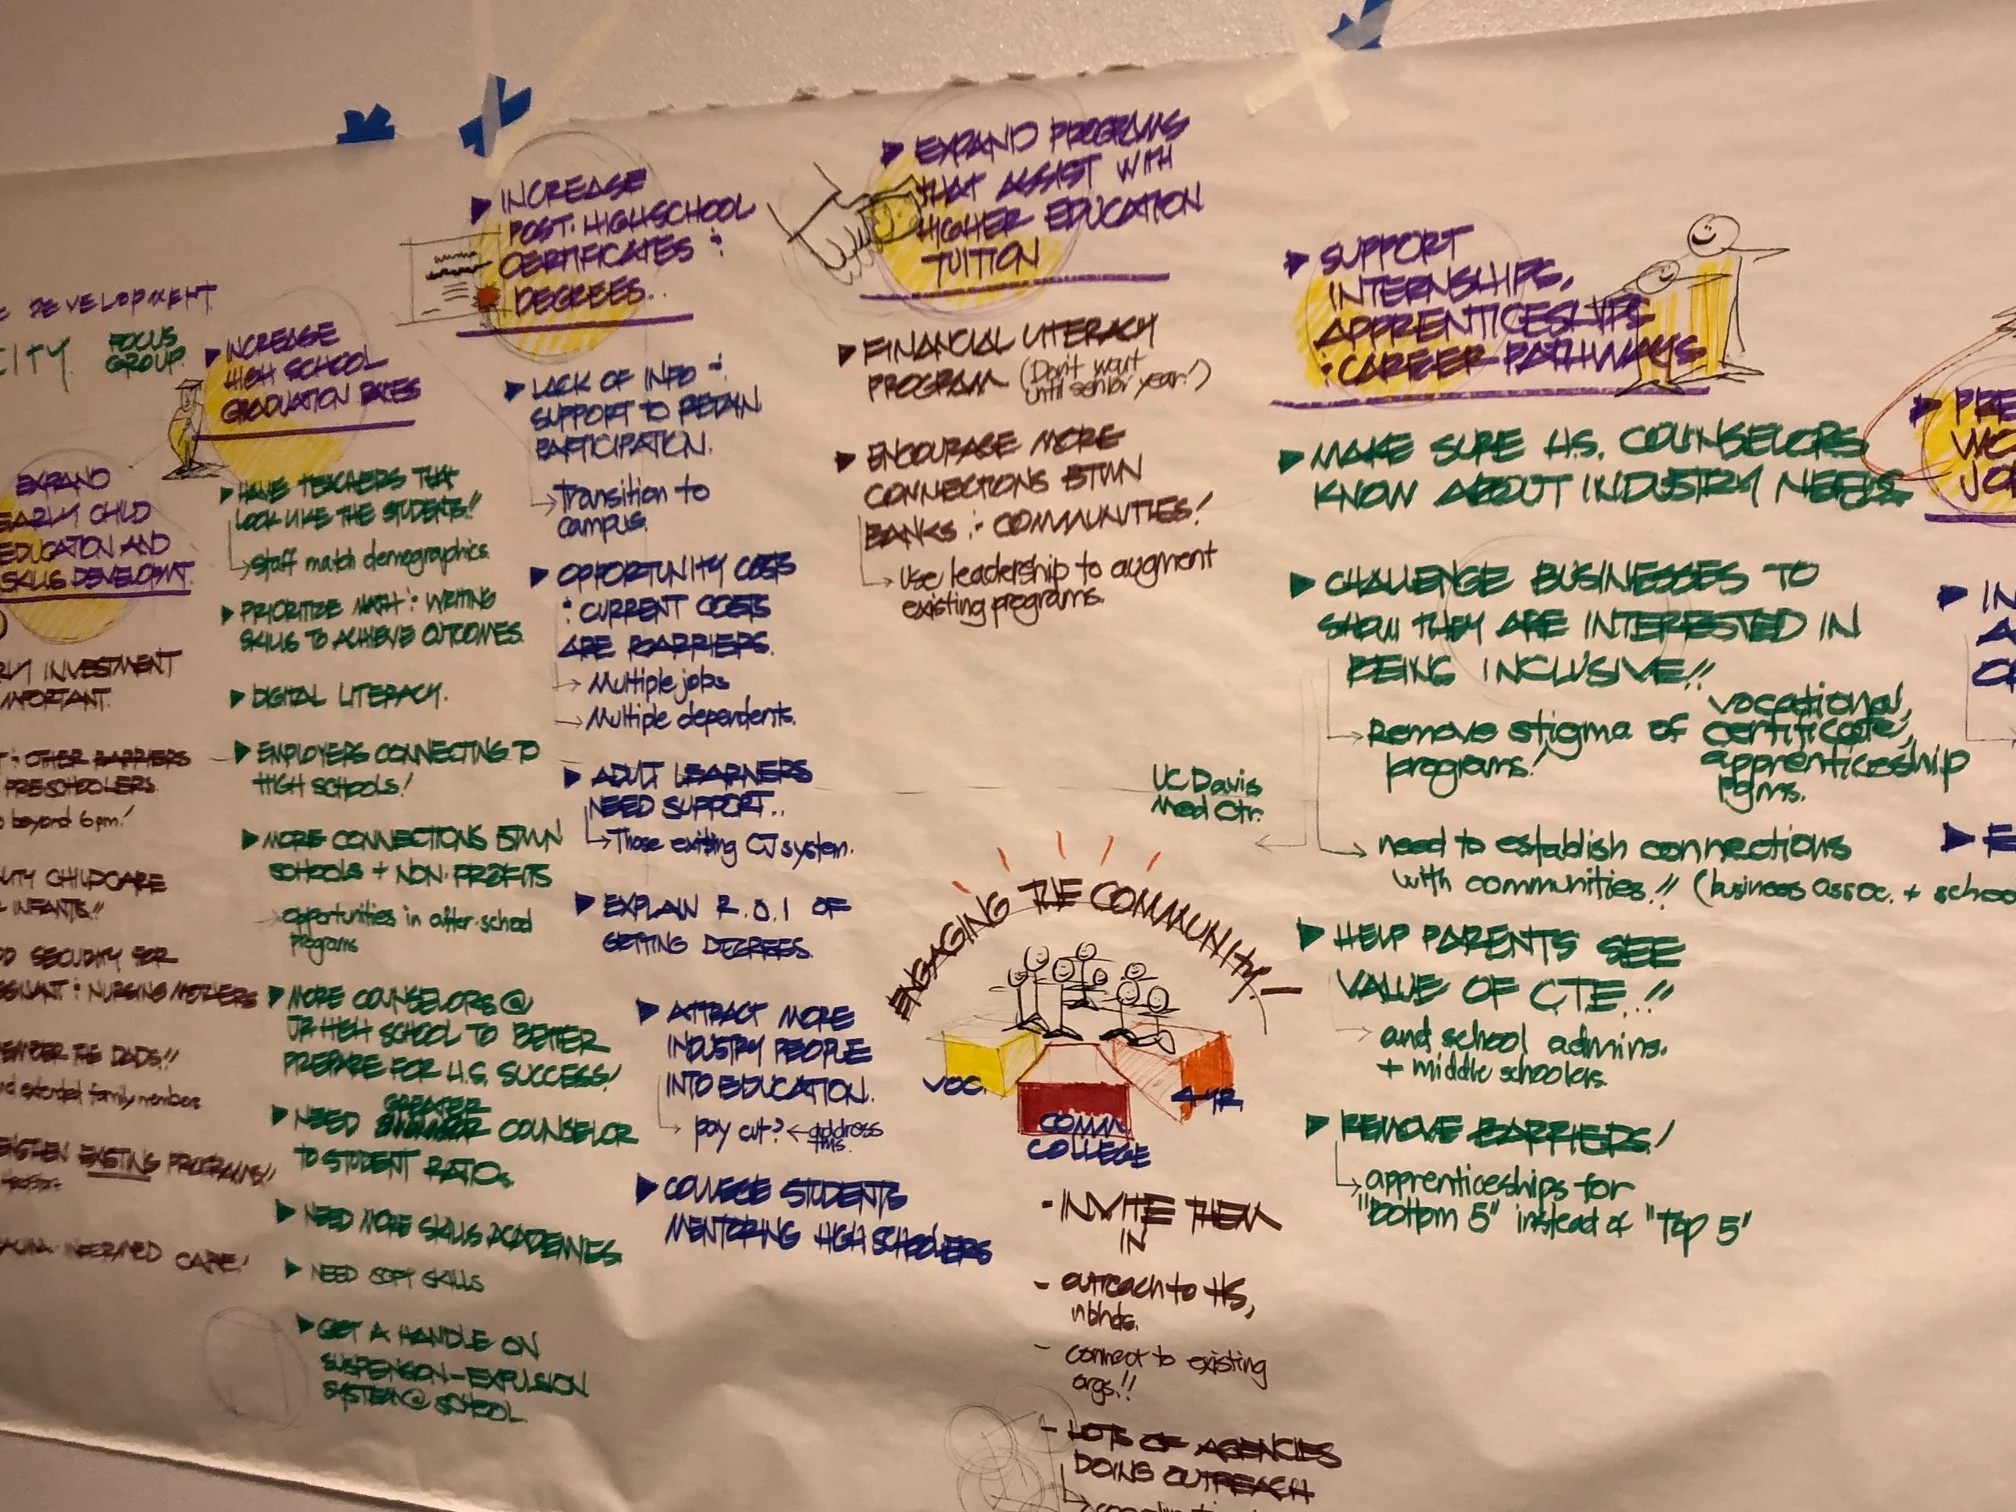 DEVELOPMENT
CITY FOCUS
GROUP
EXPAND
EARLY CHILD
EDUCATION AND
SKILLS DEVELOPMT.
INVESTMENT
IMPORTANT.
OTHER BARRIERS
PRESCHOOLERS
beyond 6pm!
CHILDCARE
INFANTS!!
SECURITY FOR
: NURSING MOTHERS
THE DADS!!
extended family members
EXISTING PROGRAMS!!
INFORMED CARE!
▶ INCREASE
HIGH SCHOOL
GRADUATION RATES
▶ HAVE TEACHERS THAT
LOOK LIKE THE STUDENTS!!
↳ staff match demographics.
▶ PRIORITIZE MATH : WRITING
SKILLS TO ACHIEVE OUTCOMES.
▶ DIGITAL LITERACY.
▶ EMPLOYERS CONNECTING TO
HIGH SCHOOLS!
▶ MORE CONNECTIONS BTWN
SCHOOLS + NON-PROFITS
→ opportunities in after-school
programs
▶ MORE COUNSELORS @
JR HIGH SCHOOL TO BETTER
PREPARE FOR H.S. SUCCESS!
▶ NEED GREATER COUNSELOR
TO STUDENT RATIOS
▶ NEED MORE SKILLS ACADEMIES
▶ NEED SOFT SKILLS
▶ GET A HANDLE ON
SUSPENSION-EXPULSION
SYSTEM @ SCHOOL.
▶ INCREASE
POST-HIGHSCHOOL
CERTIFICATES :
DEGREES..
▶ LACK OF INFO :
SUPPORT TO RETAIN
PARTICIPATION.
↳ Transition to
campus.
▶ OPPORTUNITY COSTS
: CURRENT COSTS
ARE BARRIERS.
→ Multiple jobs
→ Multiple dependents.
▶ ADULT LEARNERS
NEED SUPPORT..
↳ Those exiting CJ system.
▶ EXPLAIN R.O.I OF
GETTING DEGREES.
▶ ATTRACT MORE
INDUSTRY PEOPLE
INTO EDUCATION.
↳ pay cut? ← address
this.
▶ COLLEGE STUDENTS
MENTORING HIGH SCHOOLERS
▶ EXPAND PROGRAMS
THAT ASSIST WITH
HIGHER EDUCATION
TUITION
▶ FINANCIAL LITERACY
PROGRAM (Don't wait
until senior year!)
▶ ENCOURAGE MORE
CONNECTIONS BTWN
BANKS : COMMUNITIES!
↳ use leadership to augment
existing programs.
UC Davis
Med Ctr.
ENGAGING THE COMMUNITY!
VOC.
COMM
COLLEGE
4-YR.
- INVITE THEM
IN
- outreach to HS,
nbhds.
- connect to existing
orgs.!!
- LOTS OF AGENCIES
DOING OUTREACH
▶ SUPPORT
INTERNSHIPS,
APPRENTICESHIPS
: CAREER PATHWAYS
▶ MAKE SURE H.S. COUNSELORS
KNOW ABOUT INDUSTRY NEEDS.
▶ CHALLENGE BUSINESSES TO
SHOW THEY ARE INTERESTED IN
BEING INCLUSIVE!!
→ Remove stigma of vocational,
programs! certificate,
apprenticeship
pgms.
→ need to establish connections
with communities!! (business assoc. +
▶ HELP PARENTS SEE
VALUE OF CTE.!!
→ and school admins.
+ middle schoolers.
▶ REMOVE BARRIERS!
↳ apprenticeships for
"bottom 5" instead of "Top 5"